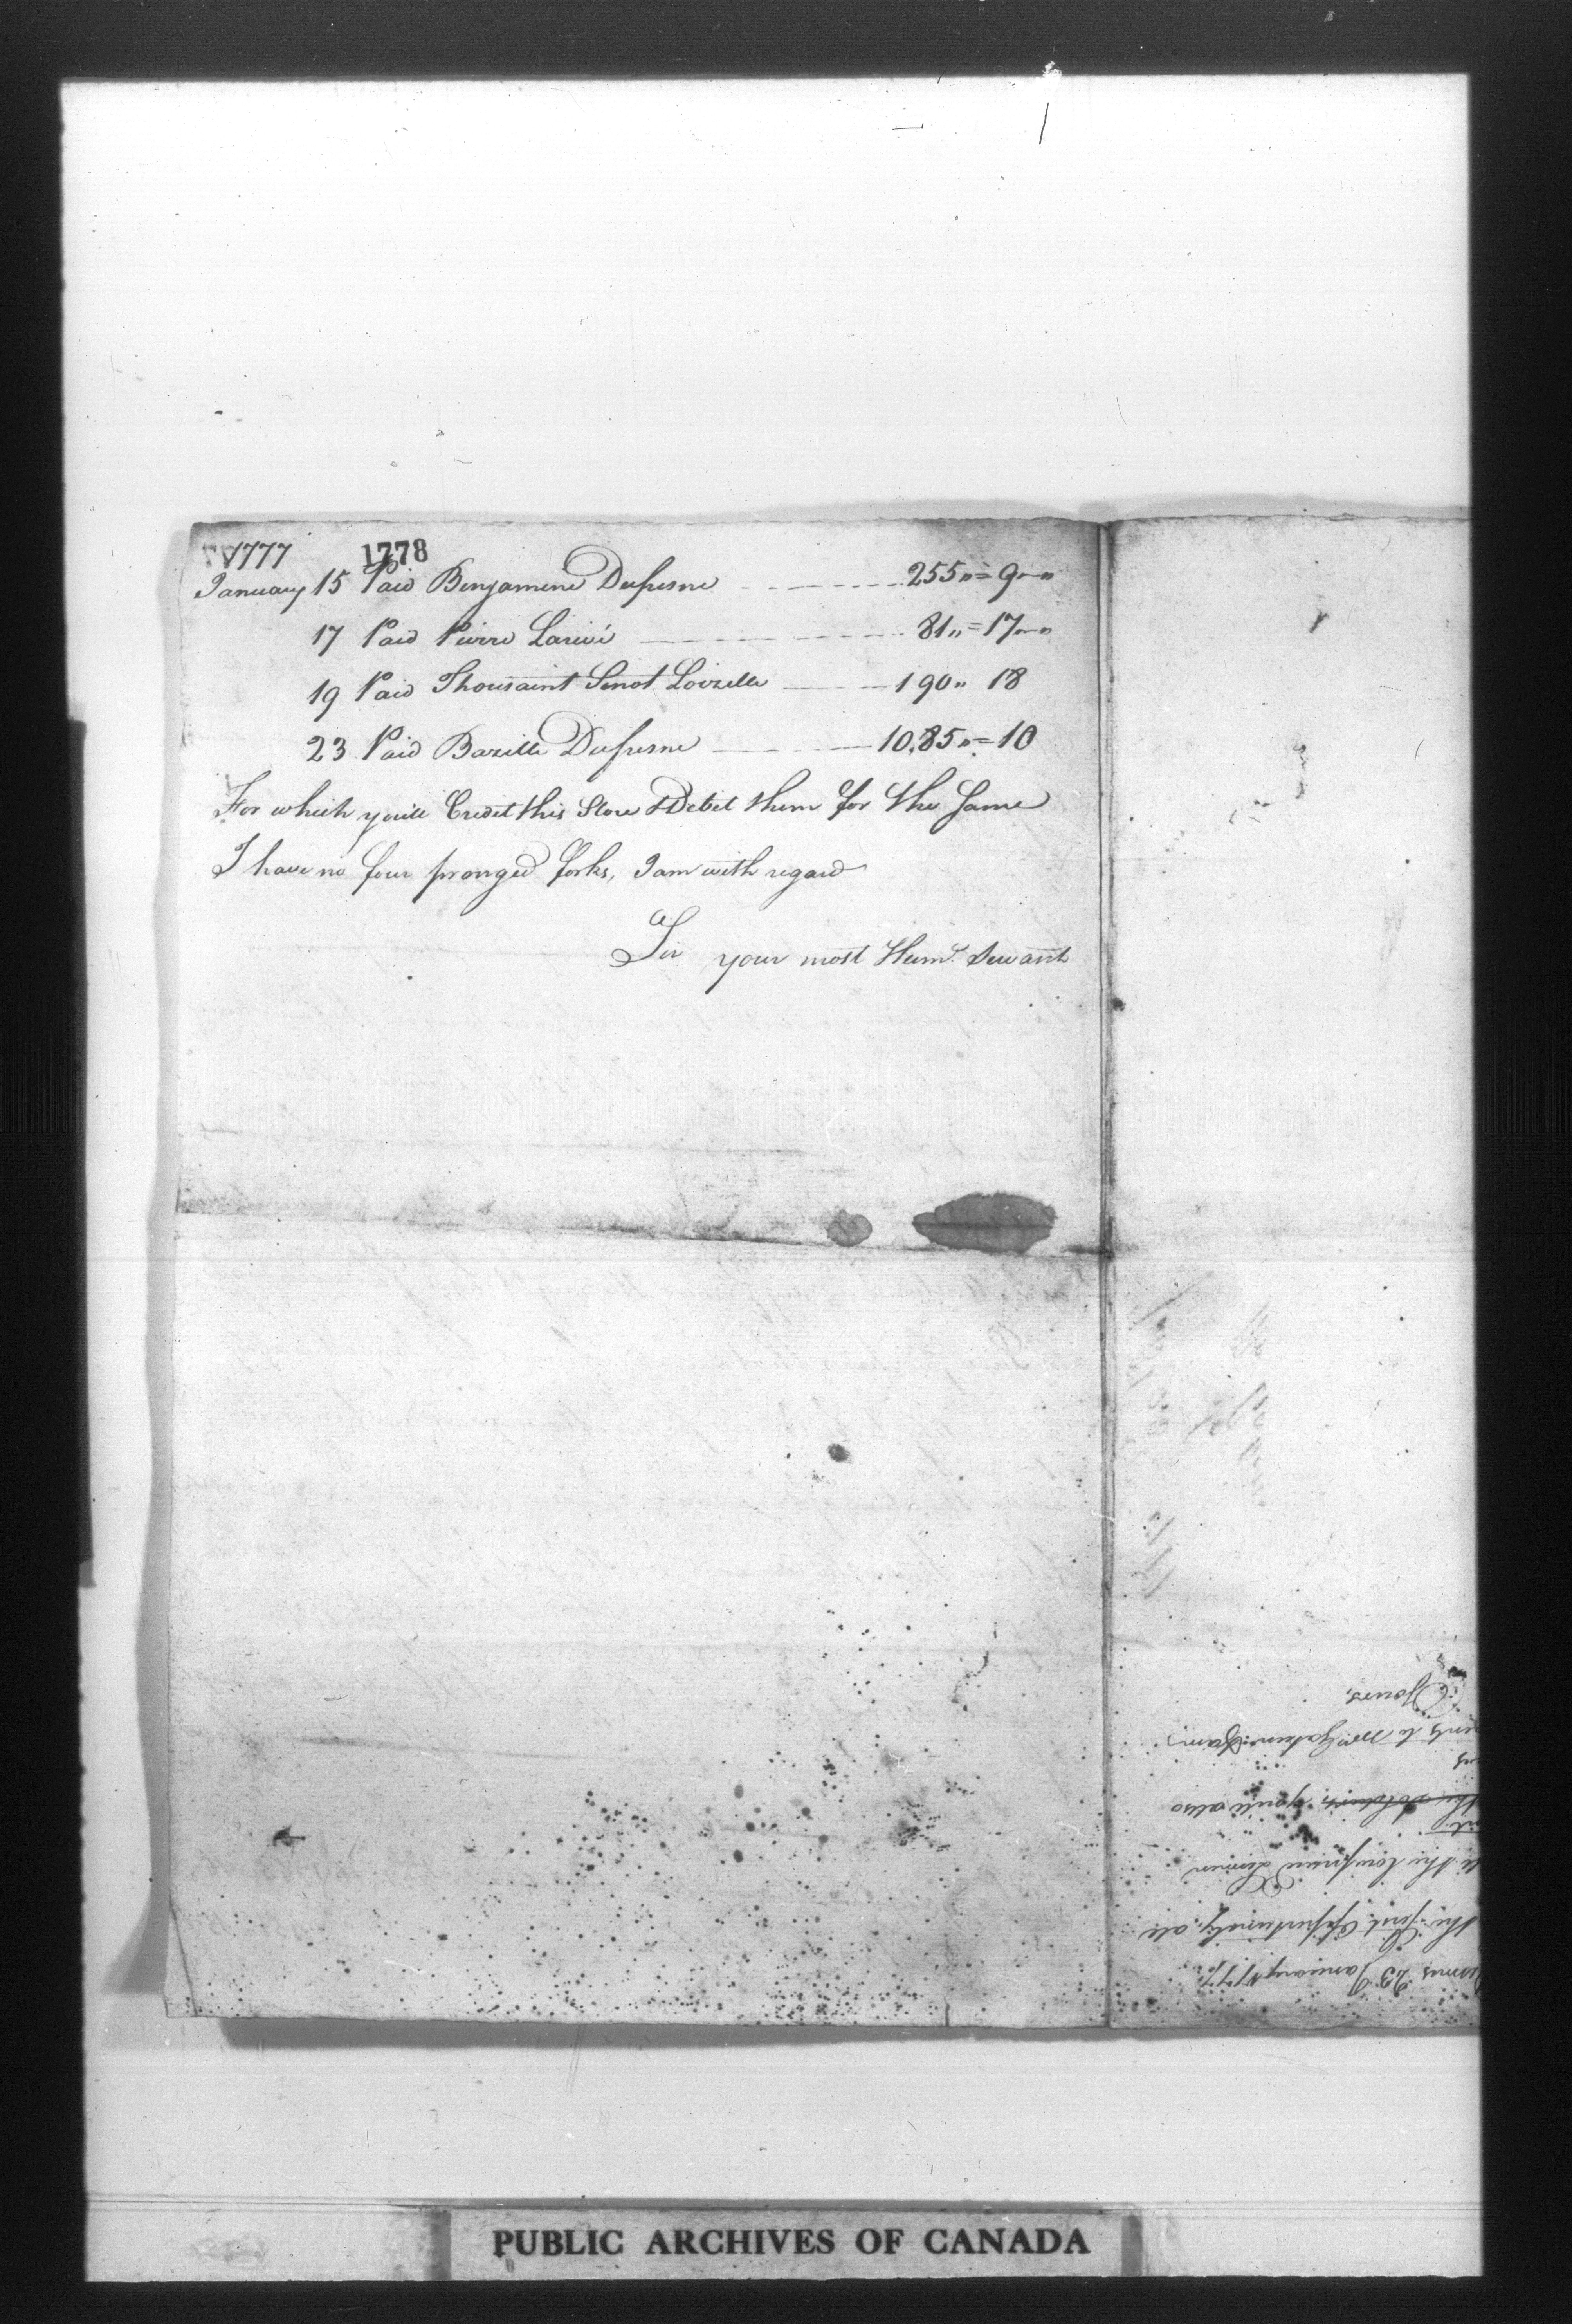 1777 1778
January 15 Paid Benjamine Dufresne 255"=9"-"
17 Paid Pierre Larivé 81"=17"-"
19 Paid Thousaint Senot Loizelle 190" 18
23 Paid Bazille Dufresne 10.85"=10
For which you'll Credit this Store & Debet them for the Same
I have no four pronged forks, I am with regard
Sir your most Humᵉ Servant
23 January 1777
the first oppertunity. all
the low priced Linnen
the Soldiers you'll also
to Mr
Yours,
PUBLIC ARCHIVES OF CANADA